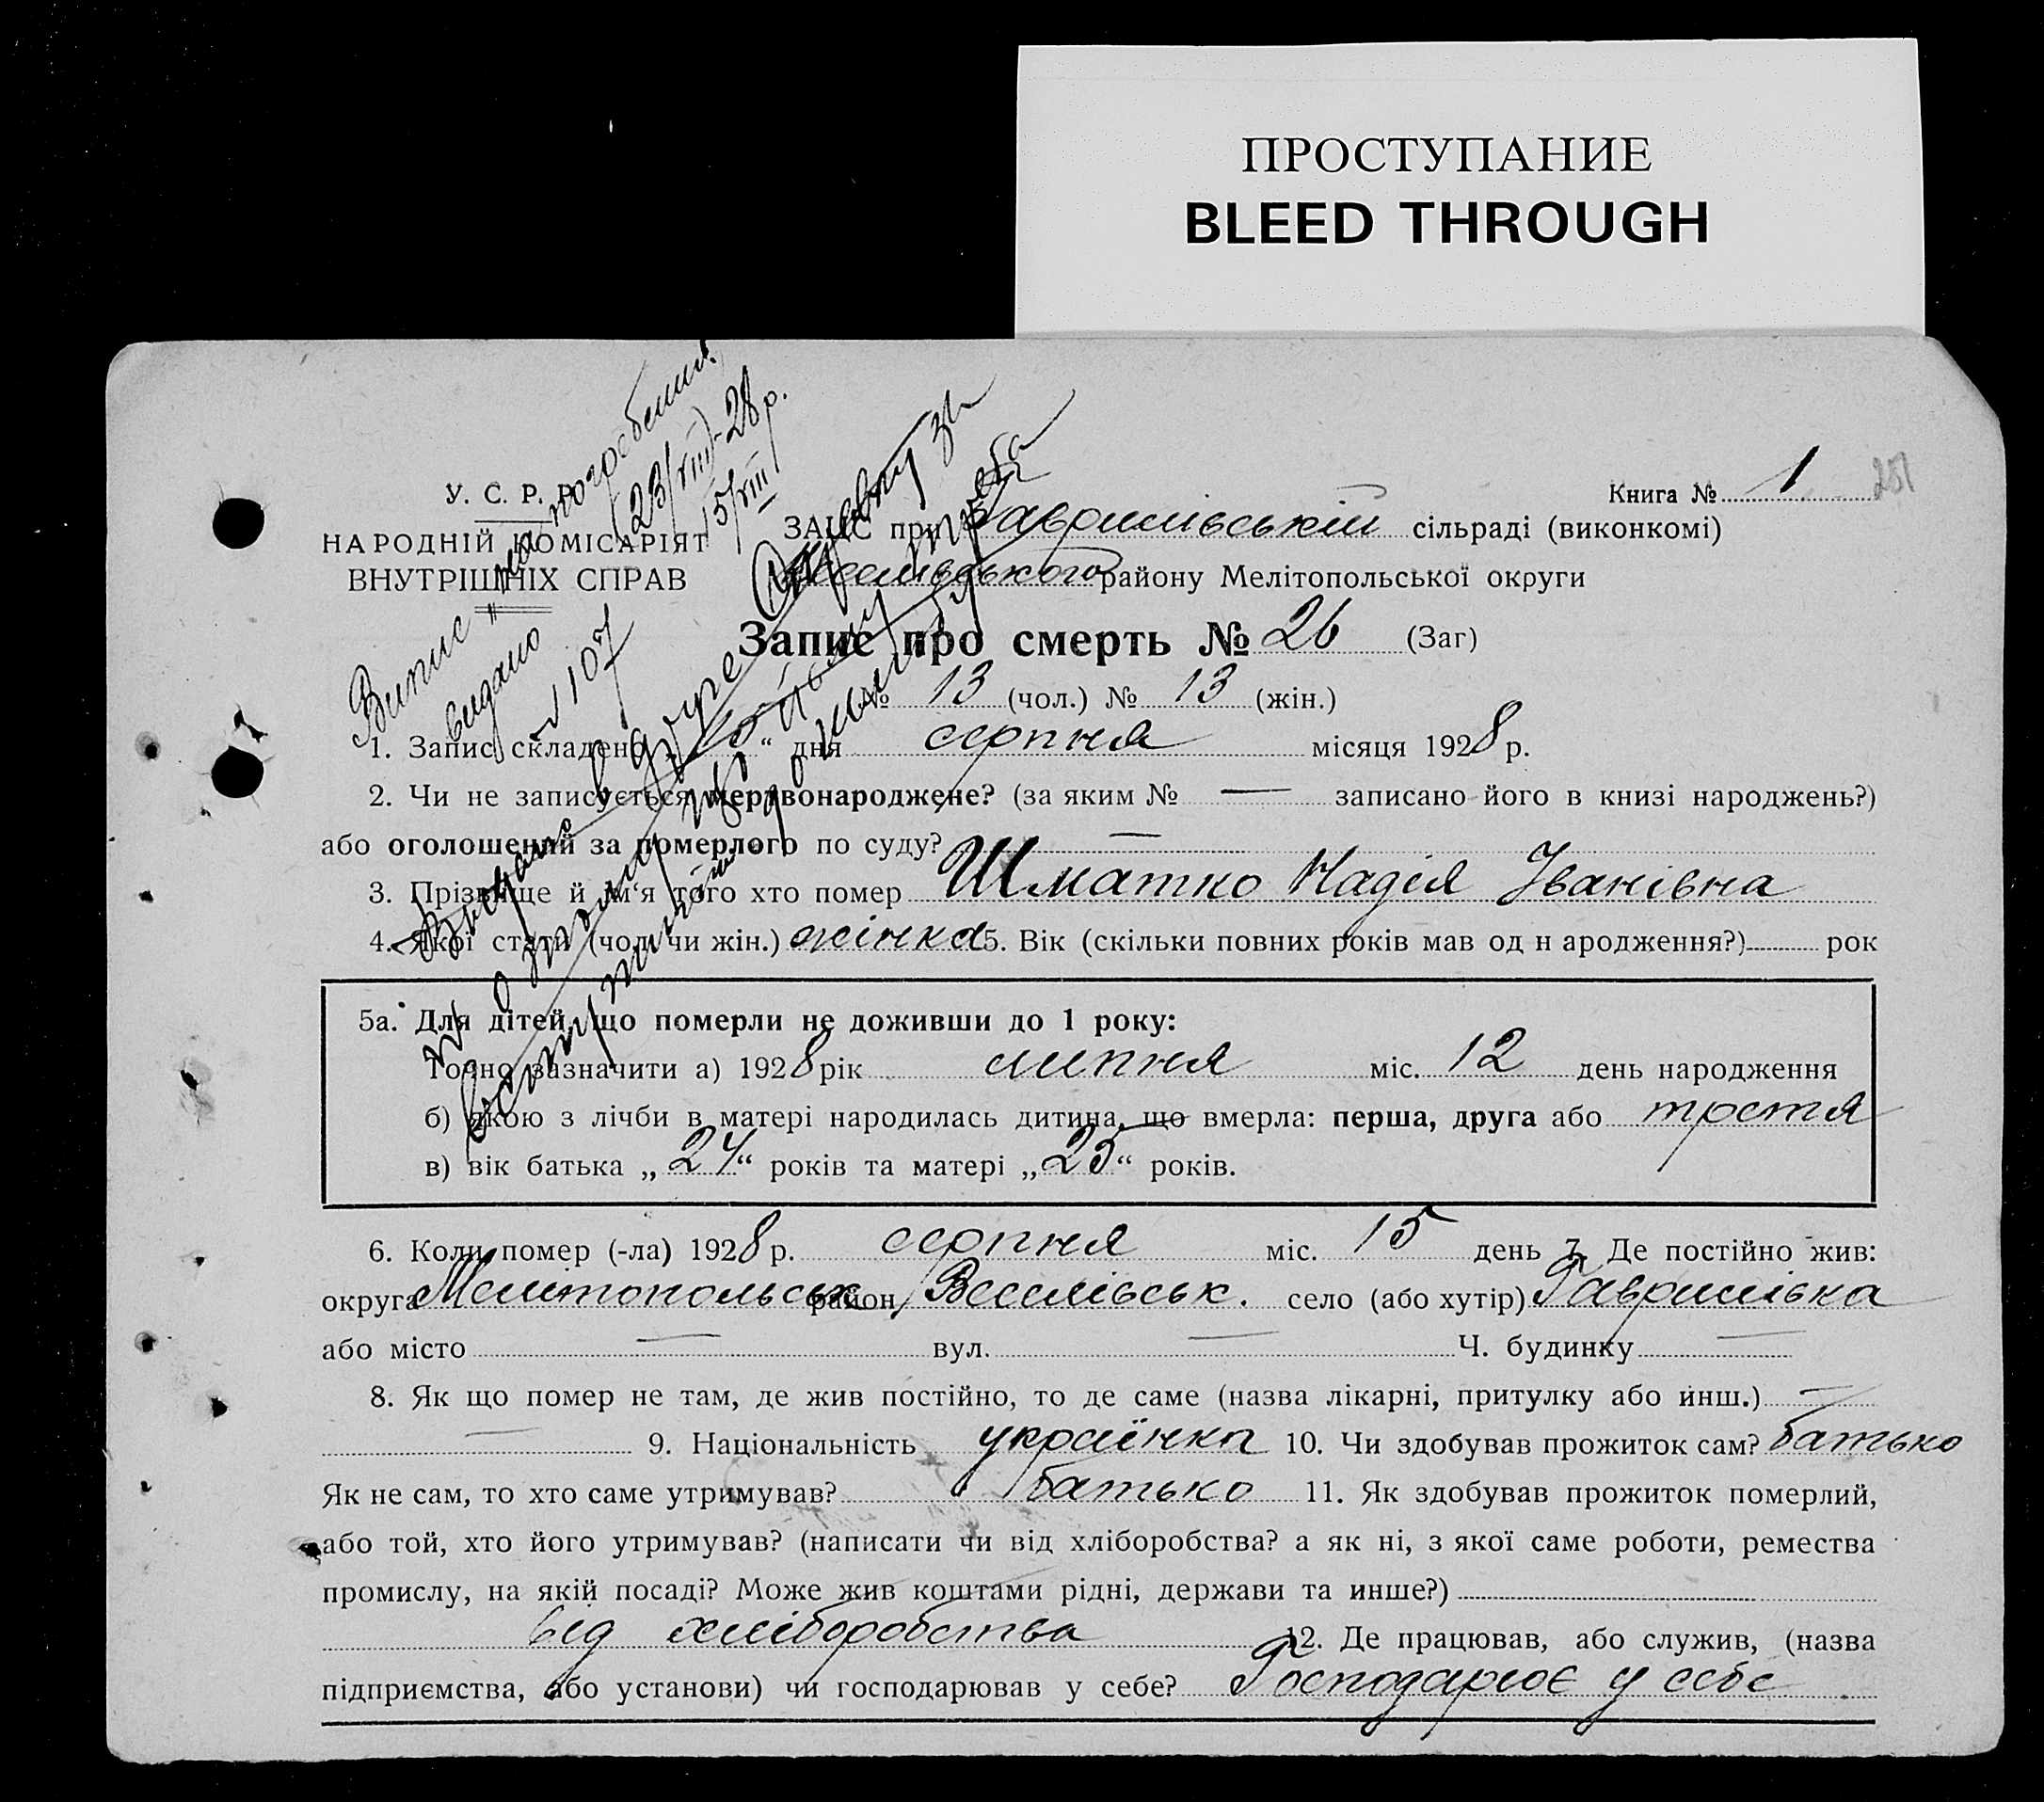 ПРОСТУПАНИЕ
BLEED THROUGH
Книга № 1
251
У. С. Р. Р.
НАРОДНІЙ КОМІСАРІЯТ
ВНУТРІШНІХ СПРАВ
Випис „на погребения"
видано 23/VIII-28 р.
15/VIII
№ 107
ЗАЦС при Гаврилівській сільраді (виконкомі)
Веселівського району Мелітопольської округи
Запис про смерть № 26 (Заг)
№ 13 (чол.) № 13 (жін.)
1. Запис складено „15" дня серпня місяця 1928 р.
2. Чи не записується мертвонароджене? (за яким № — записано його в книзі народжень?)
або оголошений за померлого по суду? —
3. Прізвище й ім'я того хто помер Шматко Надія Іванівна
4. Якої статі (чол. чи жін.) жінка 5. Вік (скільки повних років мав од н ародження?) рок
5а. Для дітей, що померли не доживши до 1 року:
Точно зазначити а) 1928 рік липня міс. 12 день народження
б) якою з лічби в матері народилась дитина, що вмерла: перша, друга або третя
в) вік батька „24" років та матері „25" років.
6. Коли помер (-ла) 1928 р. серпня міс. 15 день 7. Де постійно жив:
округа Мелітопольськ район Веселівськ. село (або хутір) Гаврилівка
або місто — вул. — Ч. будинку —
8. Як що помер не там, де жив постійно, то де саме (назва лікарні, притулку або инш.) —
— 9. Національність українка 10. Чи здобував прожиток сам? батько
Як не сам, то хто саме утримував? батько 11. Як здобував прожиток померлий,
або той, хто його утримував? (написати чи від хліборобства? а як ні, з якої саме роботи, ремества
промислу, на якій посаді? Може жив коштами рідні, держави та инше?)
від хліборобства 12. Де працював, або служив, (назва
підприємства, або установи) чи господарював у себе? Господарює у себе